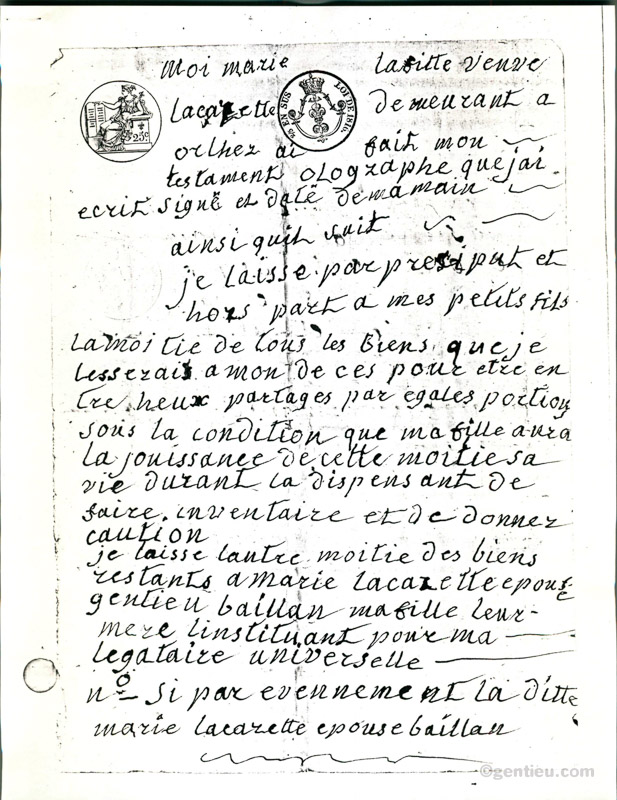 Moi marie lafitte veuve
lacazette demeurant a
orthez ai fait mon
testament olographe que jai
ecrit signé et daté de ma main
ainsi quil suit
je laisse par preciput et
hors part a mes petits fils
la moitie de tous les biens que je
lesserais a mon de ces pour etre en
tre heux partages par egales portion
sous la condition que ma fille aura
la jouissance de cette moitie sa
vie durant la dispensant de
faire inventaire et de donner
caution
je laisse lautre moitie des biens
restants a Marie lacazette epouse
gentieu baillan ma fille leur
mere linstituant pour ma
legataire universelle
nº si par evennement la d'itte
marie lacazette epouse baillan
25c
EN SUS
LOI DE 1816
©gentieu.com